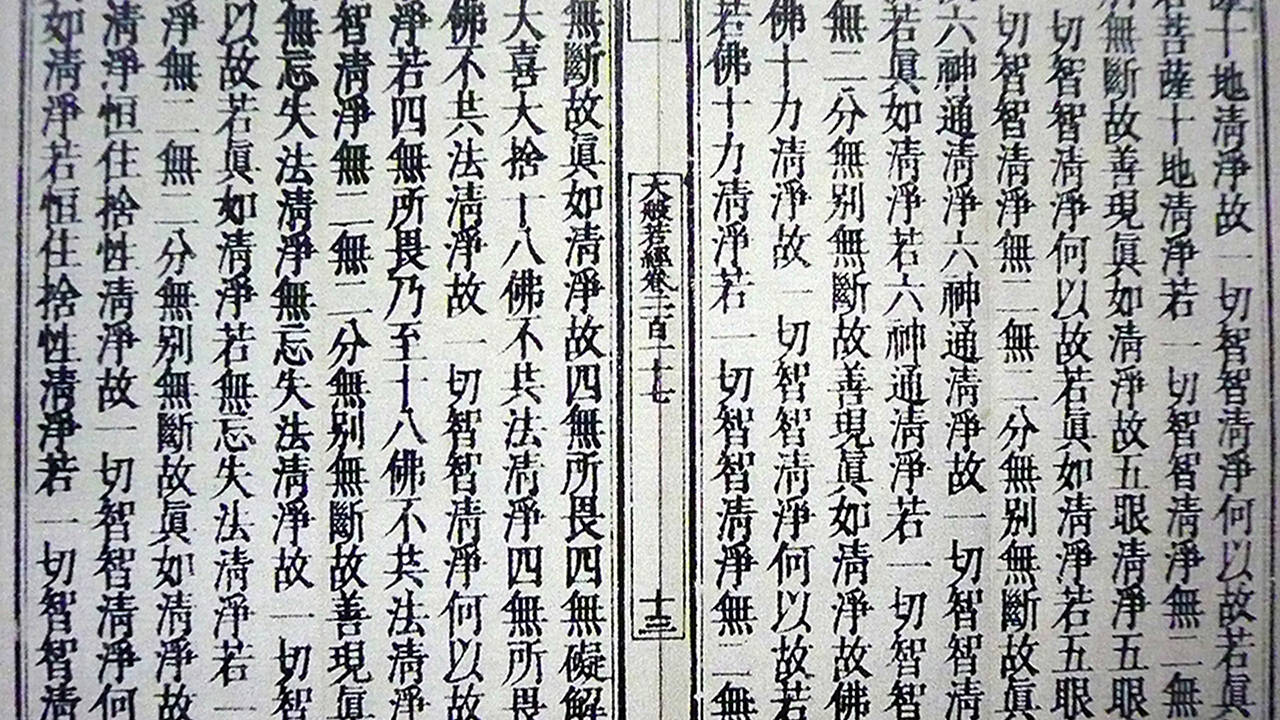 十地清淨故一切智智清淨何以故若眞
若菩薩十地清淨若一切智智清淨無二無
別無斷故善現眞如清淨故五眼清淨五眼
切智智清淨何以故若眞如清淨若五眼
切智智清淨無二無二分無別無斷故眞
六神通清淨六神通清淨故一切智智清
若眞如清淨若六神通清淨若一切智智
無二分無別無斷故善現眞如清淨故佛
佛十力清淨故一切智智清淨何以故若
若佛十力清淨若一切智智清淨無二無
大般若經卷二百一十七
十三
無斷故眞如清淨故四無所畏四無礙解
大喜大捨十八佛不共法清淨四無所畏
佛不共法清淨故一切智智清淨何以故
淨若四無所畏乃至十八佛不共法清淨
智清淨無二無二分無別無斷故善現眞
無忘失法清淨無忘失法清淨故一切智
以故若眞如清淨若無忘失法清淨若一
淨無二無二分無別無斷故眞如清淨故
清淨恒住捨性清淨故一切智智清淨何
如清淨若恒住捨性清淨若一切智智清